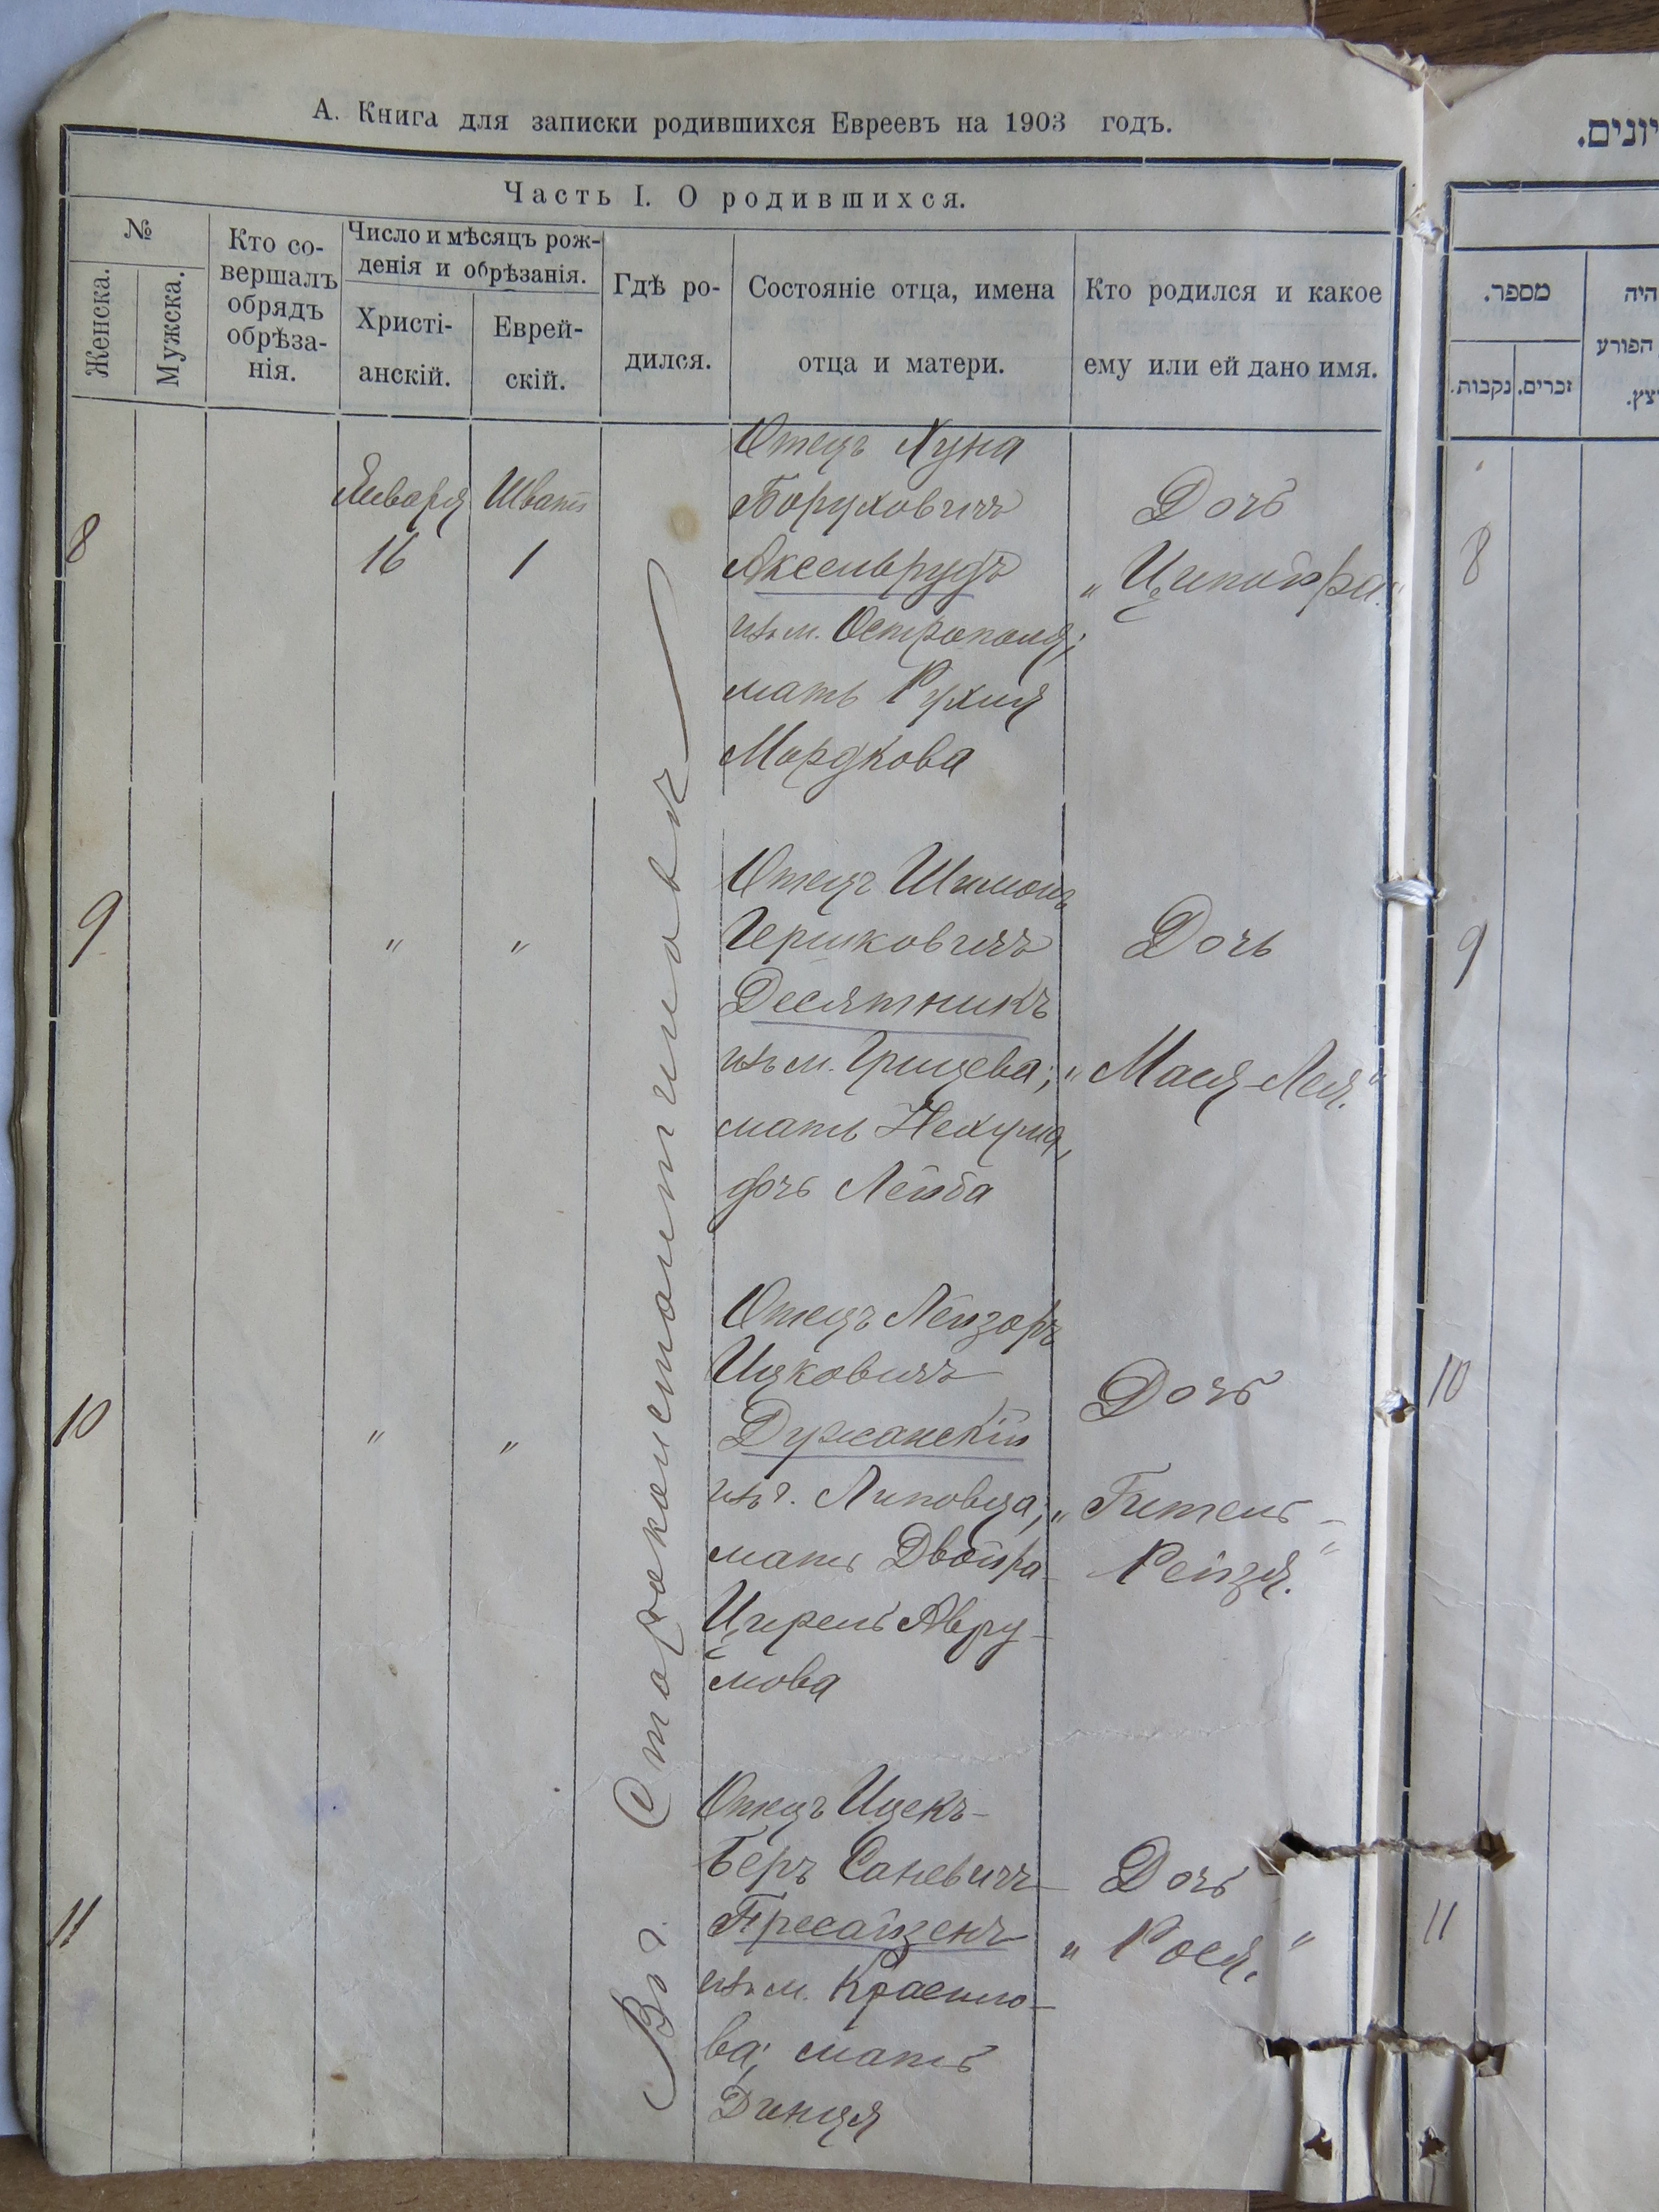 А. Книга для записки родившихся Евреевъ на 1903 годъ.
Часть I. О родившихся.
№
Женска.
Мужска.
Кто со-
вершалъ
обрядъ
обрѣза-
нія.
Число и мѣсяцъ рож-
денія и обрѣзанія.
Христі-
анскій.
Еврей-
скій.
Гдѣ ро-
дился.
Состояніе отца, имена
отца и матери.
Кто родился и какое
ему или ей дано имя.
8
Января
16
Шватъ
1
Отецъ Хуна
Боруховичъ
Аксельрудъ
изъ м. Острополя;
мать Рухля
Мордкова
Дочь
„Ципойра."
9
"
"
Отецъ Шимонъ
Гершковичъ
Десятникъ
изъ м. Грицева;
мать Нехума,
дочь Лейба
Дочь
„Мася-Лея."
10
"
"
Отецъ Лейзоръ
Ицковичъ
Дужанскій
изъ г. Липовца;
мать Двойра-
Цирель Авру-
мова
Дочь
„Гитель-
Рейзя."
11
Отецъ Ицекъ-
Беръ Саневичъ
Пресайзенъ
изъ м. Красило-
ва; мать
Динця
Дочь
„Рося."
Въ г. Староконстантиновѣ
יונים.
מספר.
נקבות.
זכרים.
היה
הפורע
8
9
10
11